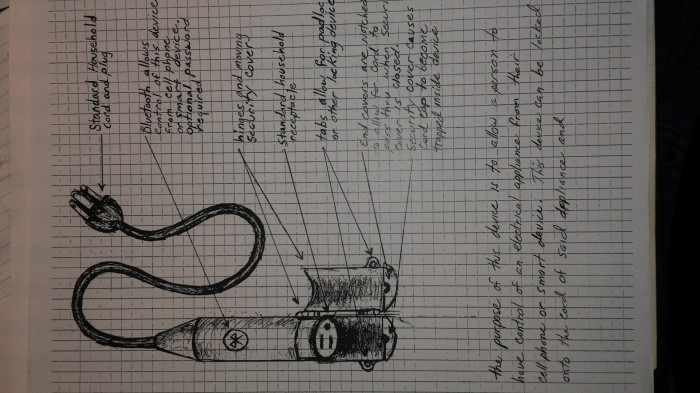 Standard Household
cord and plug
Bluetooth allows
control of this device
from cell phone
or smart device..
optional password
required
hinges and moving
security cover
Standard household
receptacle
tabs allow for padloc
or other locking device
End covers are notched
to allow for cord to
pass thru when securi
cover is closed.
Security cover causes
cord cap to become
trapped inside device
the purpose of this device is to allow a person to
have control of an electrical appliance from their
cell phone or smart device. This device can be locked
onto the cord of said appliance and